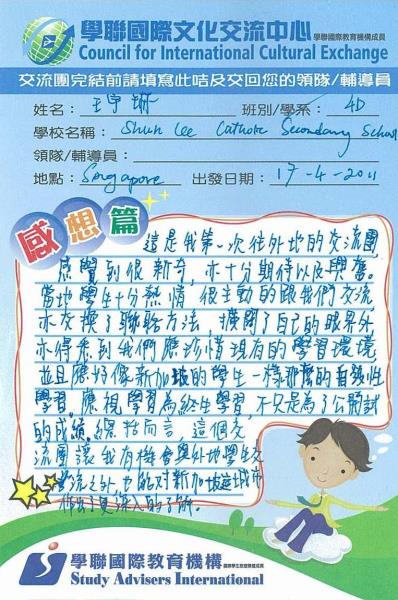 學聯國際文化交流中心 學聯國際教育機構成員
Council for International Cultural Exchange
交流團完結前請填寫此咭及交回您的領隊/輔導員
姓名： 王宇 班別/學系： 4D
學校名稱： Shun Lee Catholic Secondary School
領隊/輔導員：
地點： Singapore 出發日期： 17-4-2011
感想篇
這是我第一次往外地的交流團
感覺到很新奇，亦十分期待以及興奮。
當地學生十分熱情，很主動的跟我們交流
亦交換了聯絡方法，擴闊了自己的眼界外
亦得悉到我們應珍惜現有的學習環境
並且應好像新加坡的學生一樣那麼的自發性
學習。應視學習為終生學習，不只是為了公開試
的成績。總括而言，這個交
流團讓我有機會與外地學生交
流之外也能對新加坡這城市
作出了更深入的了解。
學聯國際教育機構
Study Advisers International